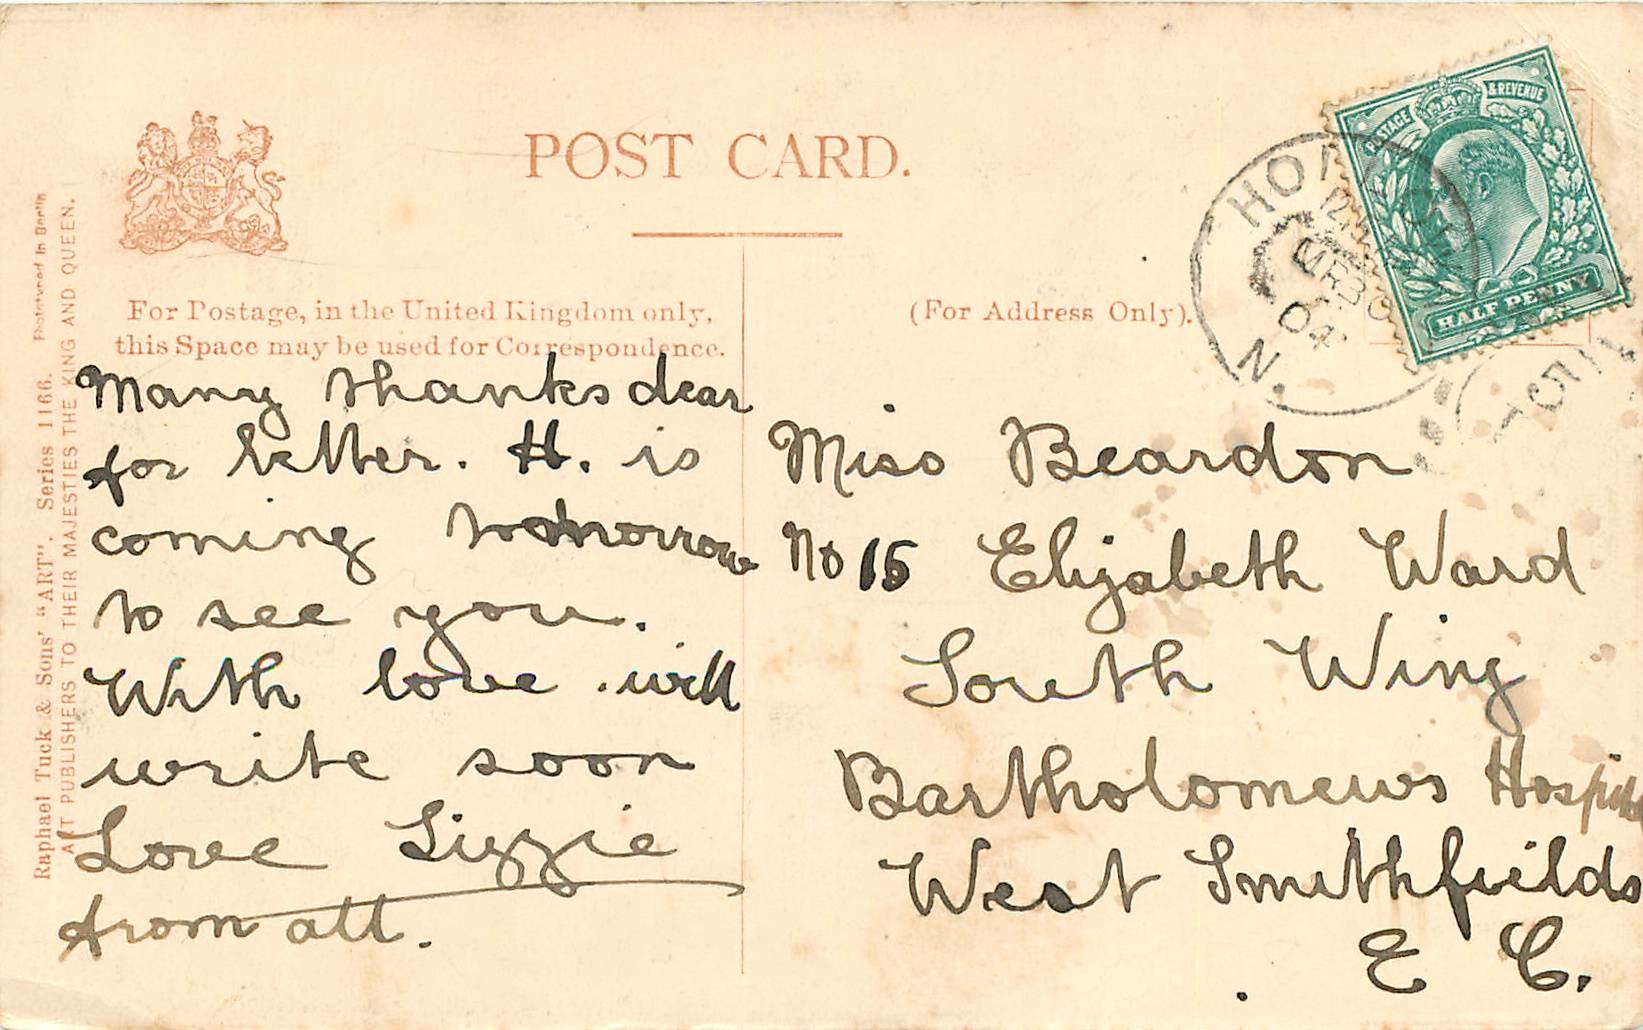 POST CARD.
For Postage, in the United Kingdom only,
this Space may be used for Correspondence.
(For Address Only).
Many thanks dear
for letter. H. is
coming tomorrow
to see you.
With love. will
write soon
Love Lizzie
from all.
Miss Beardon
No 15 Elizabeth Ward
South Wing
Bartholomews Hospital
West Smithfields
E C.
Raphael Tuck & Sons' "ART". Series 1166. Phototyped in Berlin
ART PUBLISHERS TO THEIR MAJESTIES THE KING AND QUEEN.
POSTAGE & REVENUE
HALF PENNY
MR 30
04
N.